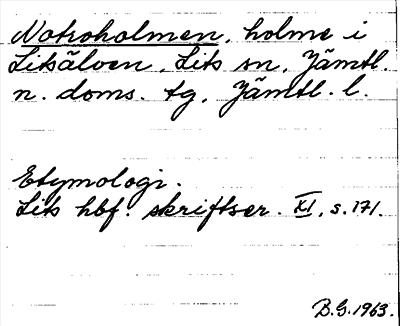 Notroholmen, holme i
Litsälven, Lits sn, Jämtl.
n. doms. tg, Jämtl. l.
Etymologi.
Lits hbf. skriftser. XI, s. 171.
B.G. 1963.